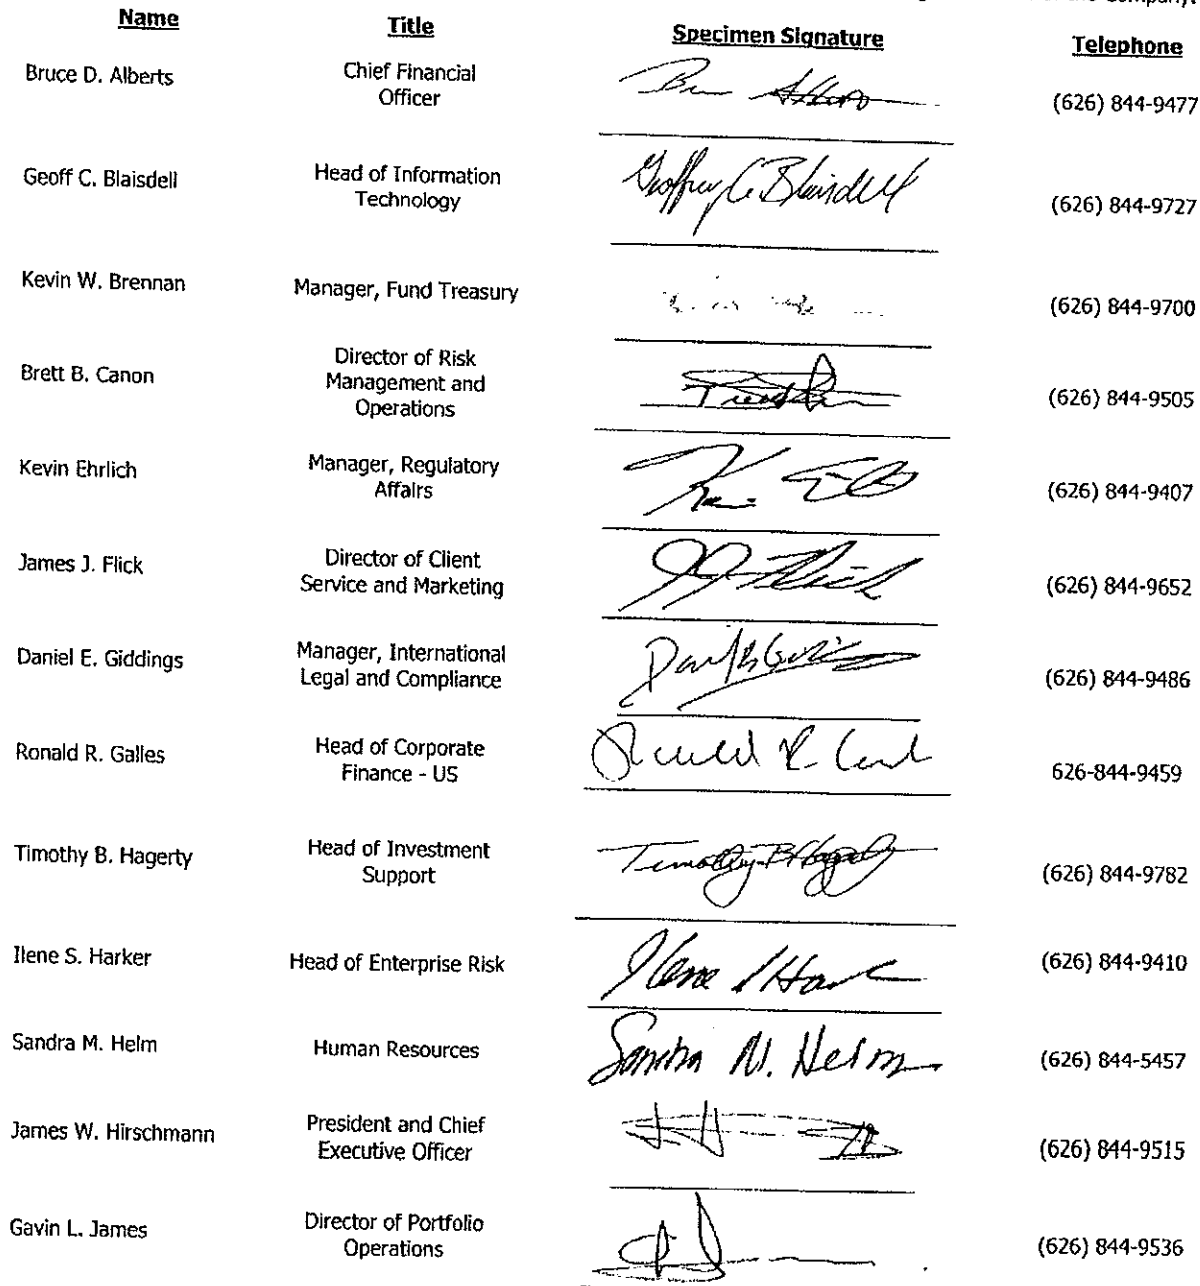 the Company.
Name Title Specimen Signature Telephone
Bruce D. Alberts Chief Financial Officer (626) 844-9477
Geoff C. Blaisdell Head of Information Technology Geoffrey C Blaisdell (626) 844-9727
Kevin W. Brennan Manager, Fund Treasury (626) 844-9700
Brett B. Canon Director of Risk Management and Operations (626) 844-9505
Kevin Ehrlich Manager, Regulatory Affairs (626) 844-9407
James J. Flick Director of Client Service and Marketing (626) 844-9652
Daniel E. Giddings Manager, International Legal and Compliance (626) 844-9486
Ronald R. Galles Head of Corporate Finance - US 626-844-9459
Timothy B. Hagerty Head of Investment Support Timothy B Hagerty (626) 844-9782
Ilene S. Harker Head of Enterprise Risk Ilene S Hark (626) 844-9410
Sandra M. Helm Human Resources Sandra M. Helm (626) 844-5457
James W. Hirschmann President and Chief Executive Officer (626) 844-9515
Gavin L. James Director of Portfolio Operations (626) 844-9536